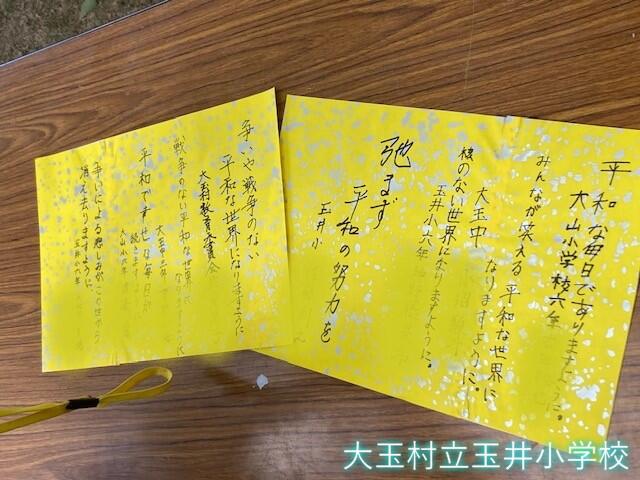 平和な毎日でありますように。
大山小学校六年
みんなが笑える平和な世界に
なりますように。
大玉中
核のない世界になりますように。
玉井小六年
弛まず
平和の努力を
玉井小
争いや戦争のない
平和な世界になりますように
大玉村教育委員会
戦争のない平和な世界に
大玉中
平和で幸せな毎日が
続きますように
大山小六年
争いによる悲しみがこの世から
消え去りますように。
玉井小六年
大玉村立玉井小学校